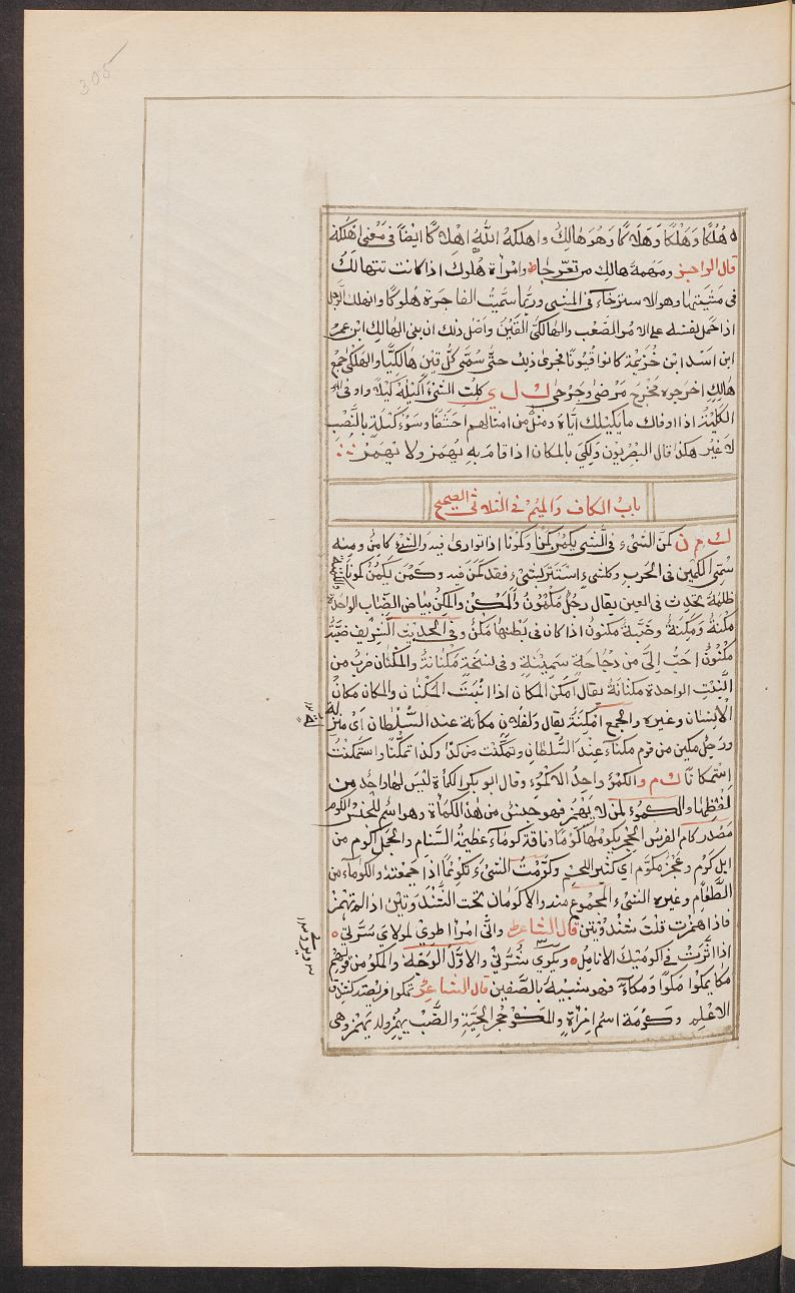 305
ه هُلْكًا وَهَلْكًا وَهَلَاكًا وَهُوَ هَالِكٌ واهلكه اللهُ اهْلاكًا ايضًا فى مَعْنى اهلكه
قال الراجز ومَهْمهٍ هالِكِ من تعرّجا وامْرأة هَلوك اذا كانت تتهالك
فى مَشيَتِها وهو الاسترخاء فى المشى وربّما سمّيت الفاجرة هَلوكًا وانهلك الرجل
اذا حمل نفسه على الامر الصَّعْب والهالكىّ القَيْن واصل ذلك ان بنى الهالك ابن عمرو
ابن اسد ابن خُزَيمة كانوا قيونًا فجرى ذلك حتّى سُمّى كلّ قين هالكيًّا والهلكى جمع
هالك اخرجوه مُخْرَج مَرْضى وجَرْحى ك ل ى كِلتِ الشىءَ اكيلُهُ كيلًا واوفى
الكيل اذا اوفاك ما يكيلك ايّاه ومثل من امثالهم احَشَفًا وسوءَ كيلةٍ بالنّصب
لا غير هكذا قال البصريون وَلكِىَ بالمكان اذا قام به يُهمَز ولا يُهمَز
بابُ الكاف والميم فى الثلاثى الصحيح
ك م ن كمن الشىء فى الشى يكمُن كمنًا وكمونًا اذا توارى فيه والشىء كامِن ومنه
سُمّى الكمين فى الحَرب وكلّ شىء استَتَر بشىء فقد كمَن فيه وكَمَن يكمُن كمونًا
ظلمَةٌ تحدث فى العين يقال رجُل مكمون والمَكِنُ والمَكْنُ بياض الضِّباب الواحدة
مكنَةٌ وَمَكِنَةٌ وضَبّةٌ مكنونٌ اذا كان فى بَطنِها مَكنٌ وفى الحديث الشريف ضَبّةٌ
مكنونٌ احَبُّ اِلىَّ من دجُاجةٍ سَمِينَةٍ وفى نسخة مكنانةٌ والمكنان ضربٌ من
النّبْتِ الواحدة مكنانَةٌ يقال امكَنَ المكان اذا انْبَتَ المَكنان والمكان مكانُ
الانسان وغيره والجمع امكِنَةٌ يقال ولفلان مكانة عند السُّلْطان اى منزلة
ورَجلٌ مكين من قوم مكناءَ عِندَ السُّلطان وتمكَّنت من كذا وكذا تمكُّنًا واستَمكنتُ
اِستمكانًا ك م و الكمْؤُ واحدُ الاكمُؤ وقال ابو بكر الكمأة ليْسَ لها واحد من
لفظِها والكموء لمن لا يَهْمز فهو جنسٌ من هذا الكمأة وهو اسم للجنس والكوم
مَصْدَر كام الفرسُ الحِجر يكومُها كَوْمًا وناقة كوماءَ عظيمةُ السَّنام والجمل اكوم من
ابلٍ كُوم وعَجُز مكوّم اى كثير اللحم وكوّمْتُ الشىءَ تكويمًا اذا جمعته والكوماءُ من
الطَّعام وغيره الشىء المجموعُ منه والاكومان تحت الثَّنْدُوَتَين اذا لم تهمزْ
فاذا همزت قلتَ ثُنْدُؤتَين قال الشاعر واِنّى امرُاٌ طوى لمولاىَ شُرّتى ه
اذا اثّرتْ فى اكومَيك الاناملُ ه ويُروى سُرَّتى والاوّلُ الوَجْهُ والمكوُ من قولهم
مكا يمكوا مكوًا ومكاءً فهو شبيهٌ بالصّفير قال الشاعر تمكوا فريصته كشدق
الاعْلمِ وكَوْمة اسم امرأةٍ والمكوُ جُحر الحيَّةِ والضَّبّ يهمزُ ولا يهمز وهى